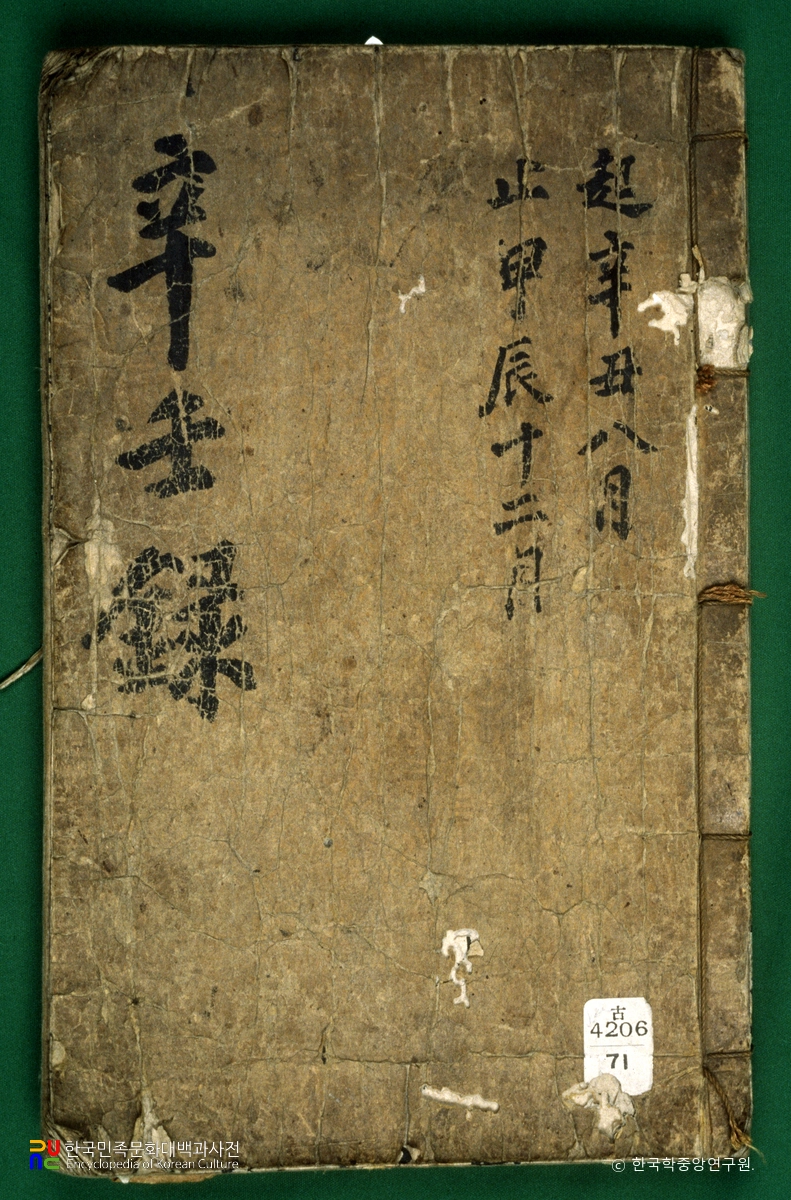 起辛丑八月
止甲辰十二月
辛壬錄
古
4206
71
한국민족문화대백과사전
Encyclopedia of Korean Culture
© 한국학중앙연구원.